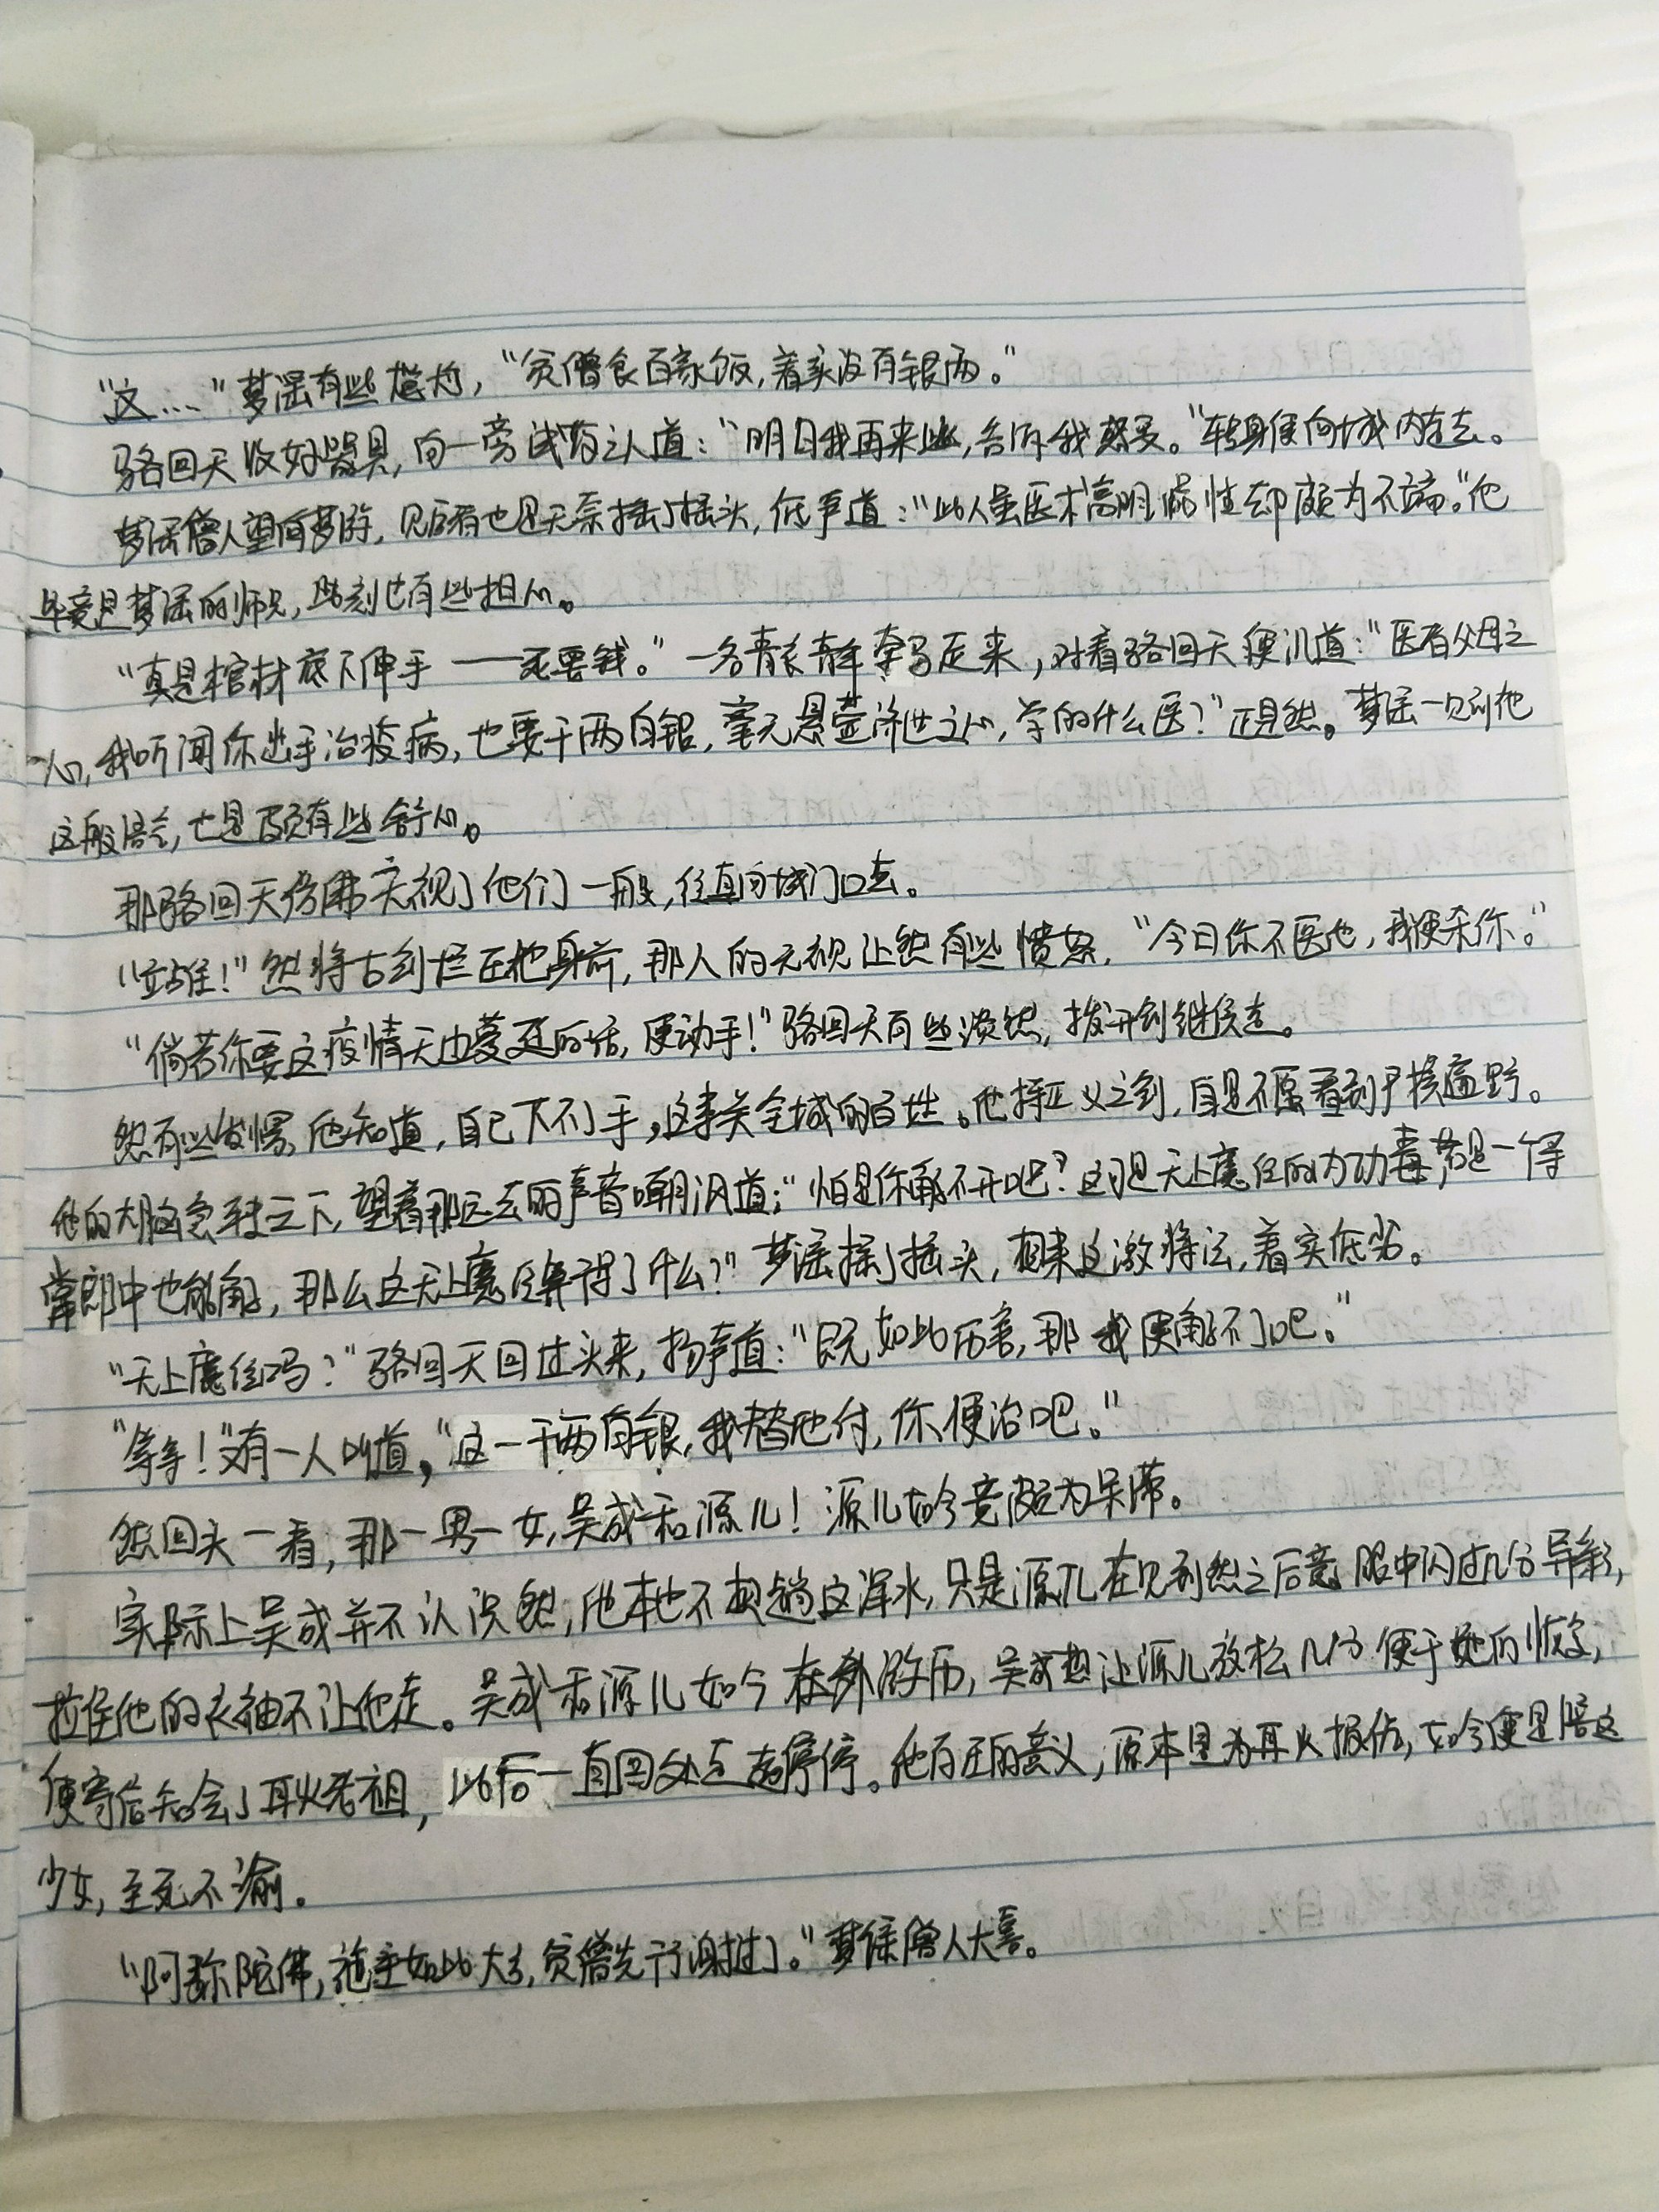 “这…”梦遥有些尴尬，“贫僧食百家饭，着实没有银两。”
骆回天收好器具，向一旁试药之人道：“明日我再来此，告诉我感受。”转身便向城内走去。
梦遥僧人望向梦游，见后者也是无奈摇了摇头，低声道：“此人虽医术高明，脾性却颇为不端。”他
毕竟是梦遥的师兄，此刻也有些担心。
“真是棺材底下伸手——死要钱。”一名青衣青年牵马走来，对着骆回天便讥道：“医者父母之
心，我听闻你出手治疫病，也要千两白银，毫无悬壶济世之心，学的什么医？”正是然。梦遥一见到他
这般语言，也是颇有些舒心。
那骆回天仿佛无视了他们一般，径直向城门口去。
“站住！”然将古剑拦在他身前，那人的无视让然有些愤怒，“今日你不医他，我便杀你。”
“倘若你要这疫情无由蔓延的话，便动手！”骆回天有些淡然，拨开剑继续走。
然有些发愣，他知道，自己下不了手，这事关全城的百姓。他持正义之剑，自是不愿看到尸横遍野。
他的大脑急转之下，望着那远去的声音嘲讽道：“怕是你解不开吧？这可是无上魔经的内功毒，若是一个寻
常郎中也能解，那么这无上魔经算得了什么？”梦遥摇了摇头，想来这激将法，着实低劣。
“无上魔经吗？”骆回天回过头来，扬声道：“既如此厉害，那我便解不了吧。”
“等等！”又有一人叫道，“这一千两白银，我替他付，你便治吧。”
然回头一看，那一男一女，吴成和源儿！源儿如今竟颇为呆滞。
实际上吴成并不认识然，他本也不想趟这浑水，只是源儿在见到然之后竟眼中闪过几分异彩，
拉住他的衣袖不让他走。吴成和源儿如今在外游历，吴成想让源儿放松几分便于她的恢复，
便寄信知会了耳火老祖，此后一直四处走走停停。他存在的意义，原本是为耳火报仇，如今便是陪这
少女，至死不渝。
“阿弥陀佛，施主如此大方，贫僧先行谢过了。”梦遥僧人大喜。